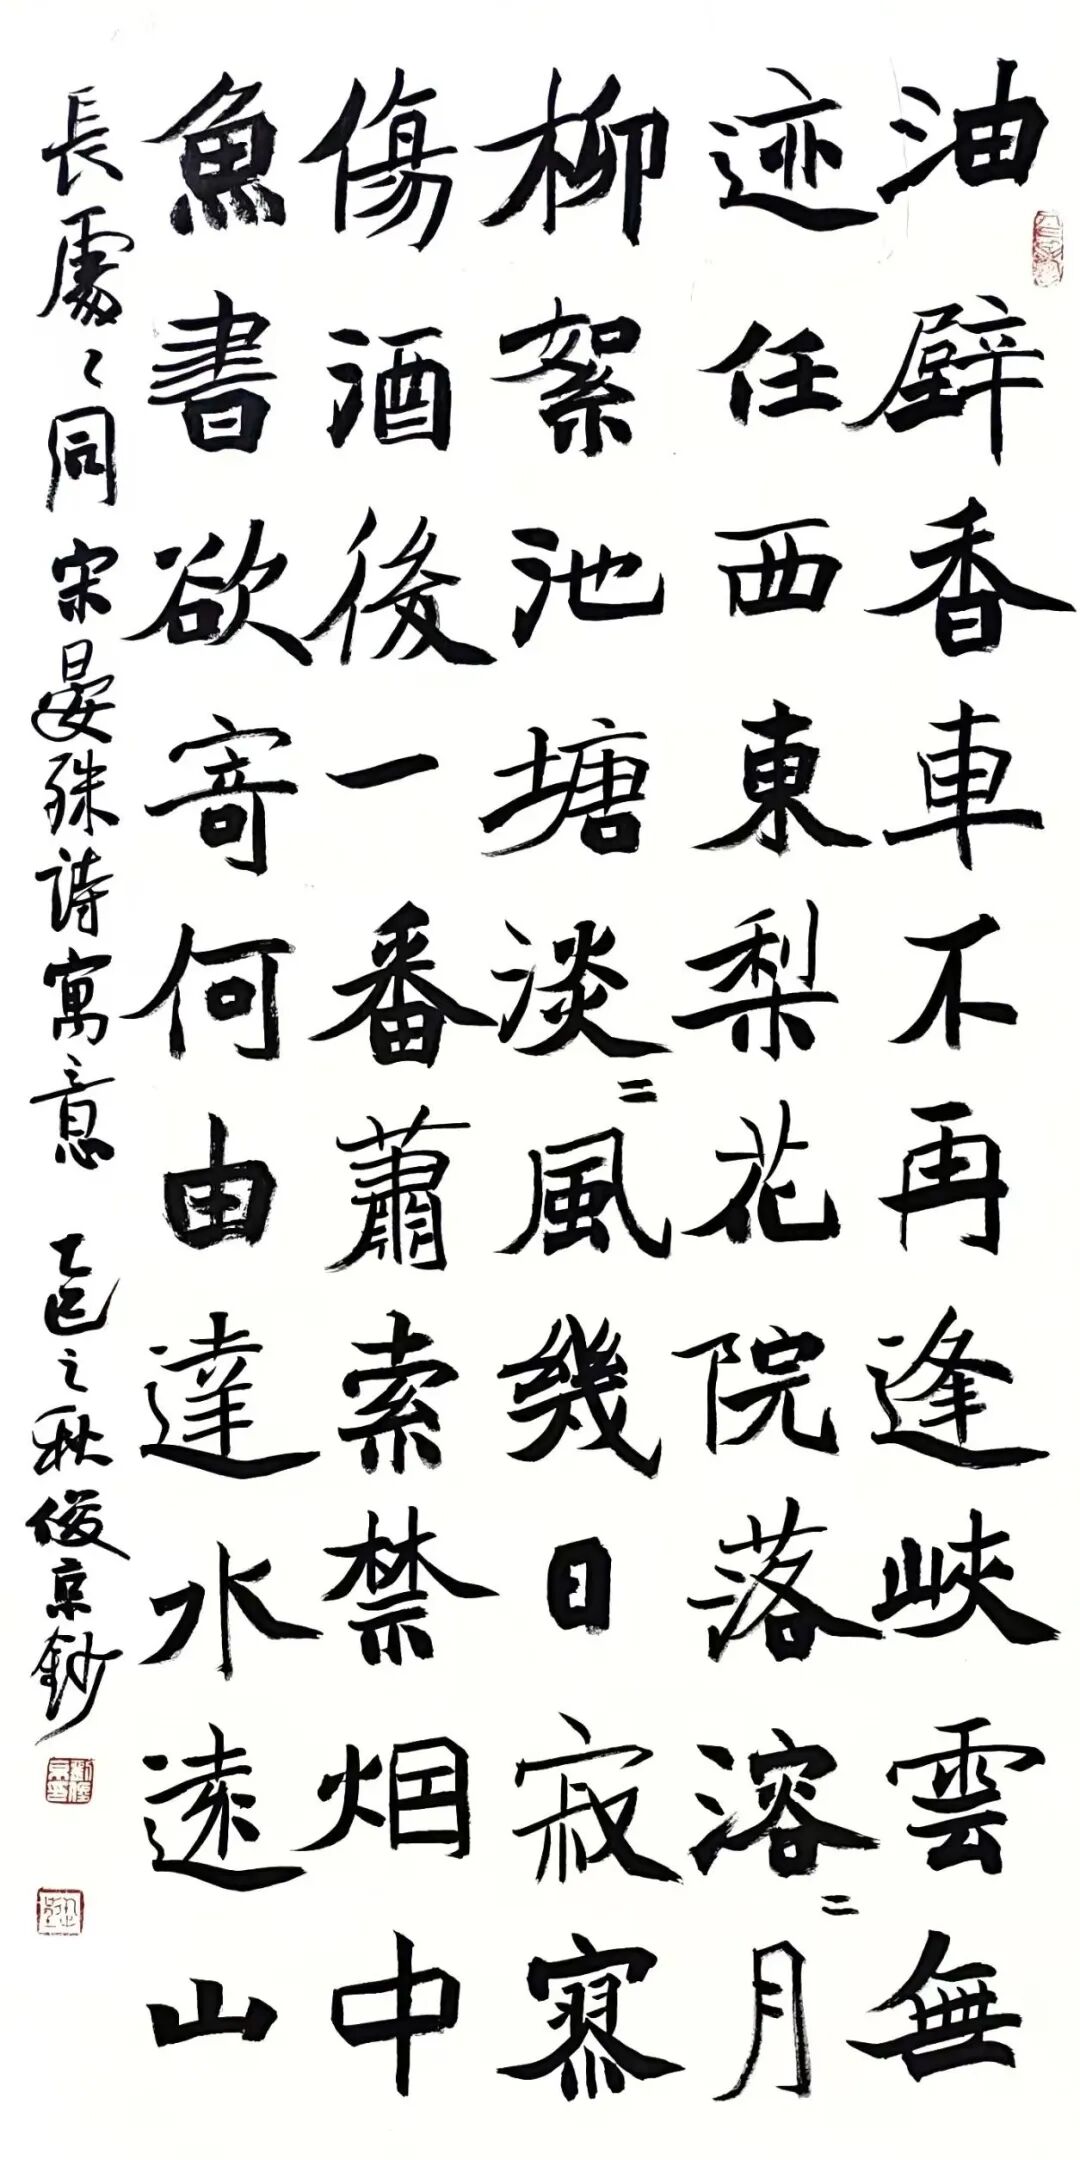 油壁香車不再逢峽雲無
迹任西東梨花院落溶〻月
柳絮池塘淡〻風幾日寂寥
傷酒後一番蕭索禁烟中
魚書欲寄何由達水遠山
長處〻同宋晏殊詩寓意 乙巳之秋俊京鈔